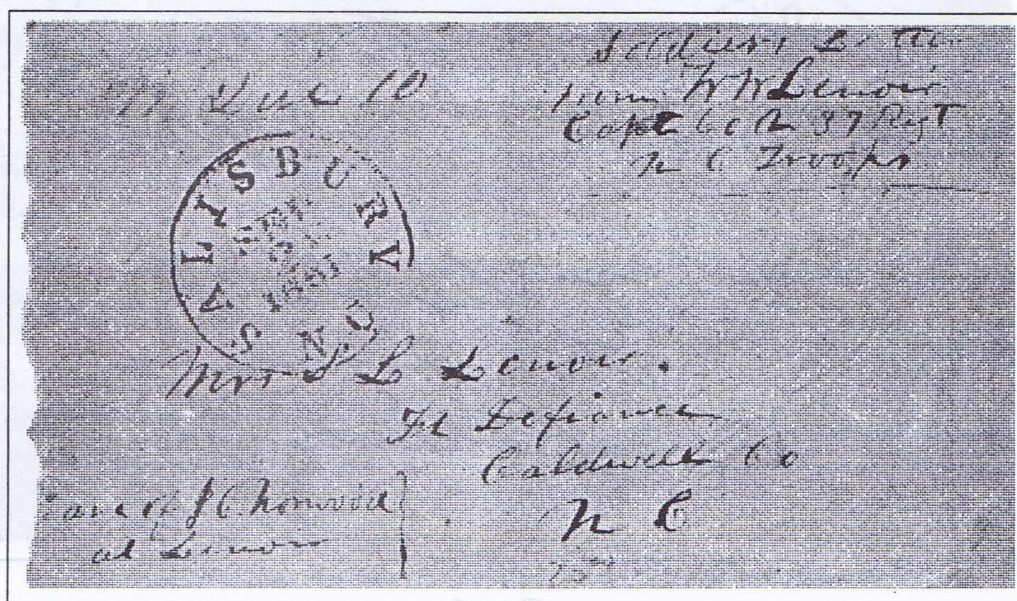 Soldiers Letter
from W W Lenoir
Capt Co A 37 Regt
N C Troops
Due 10
SALISBURY
1861
N.C.
Mrs S L Lenoir.
Ft Defiance
Caldwell Co
N C
Care of J C Norwood
at Lenoir